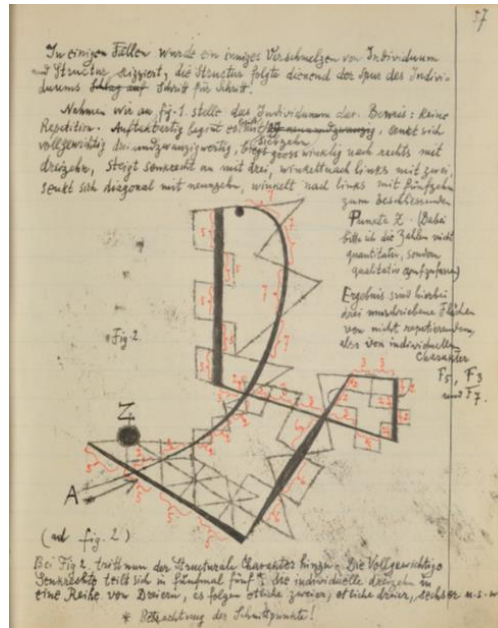 57
In einigen Fällen wurde ein inniges Verschmelzen von Individuum
und Structur skizziert, die Structur folgte dienend der Spur des Indivi-
duums Schlag auf Schritt für Schritt.
Nehmen wir an fig. 1. stelle das Individuum dar. Beweis: keine
Repetition. Auftaktartig beginnt es mit siebzehn, senkt sich
vollgewichtig, biegt gross winklig nach rechts mit
dreizehn, steigt senkrecht an mit drei, winkelt nach links mit zwei,
senkt sich diagonal mit neunzehn, winkelt nach links mit fünfzehn
zum beschliessenden
Punkte Z. (Dabei
bitte ich die Zahlen nicht
quantitativ, sondern
qualitativ aufzufassen)
Ergebnis sind hierbei
drei umschriebene Flächen
von nicht repetierendem,
also von individuellem
Charakter
F5, F3
und F7.
Fig 2.
Z
A
(auf fig. 2)
Bei Fig 2. tritt nun der Structurale Charakter hinzu. Die Vollgewichtige
Senkrechte teilt sich in fünfmal fünf die individuelle dreizehn in
eine Reihe von Dreiern, es folgen etliche zweier, etliche dreier, sechser u.s.w
* Betrachtung der Schnittpunkte!